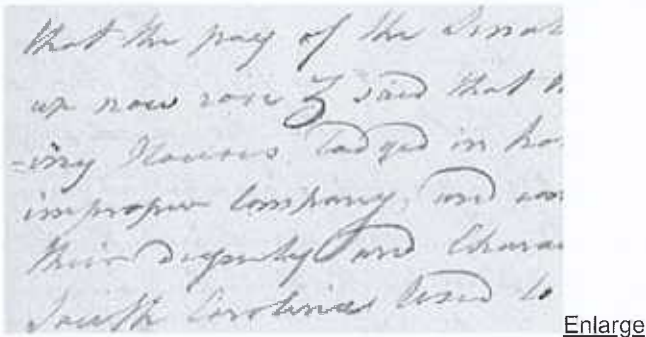 that the pay of the Senat
up now rose Z said that
-ing Houses lodged in ho
improper Company, and con
their dignity and Charac
South Carolina used to
Enlarge